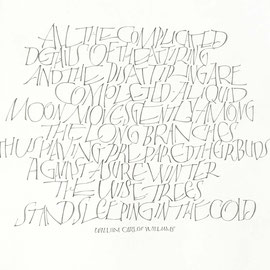 ALL THE COMPLICATED
DETAILS OF THE ATTIRING
AND THE DISATTIRING ARE
COMPLETED A LIQUID
MOON MOVES GENTLY AMONG
THE LONG BRANCHES
THUS HAVING PREPARED THEIR BUDS
AGAINST A SURE WINTER
THE WISE TREES
STAND SLEEPING IN THE COLD
WILLIAM CARLOS WILLIAMS